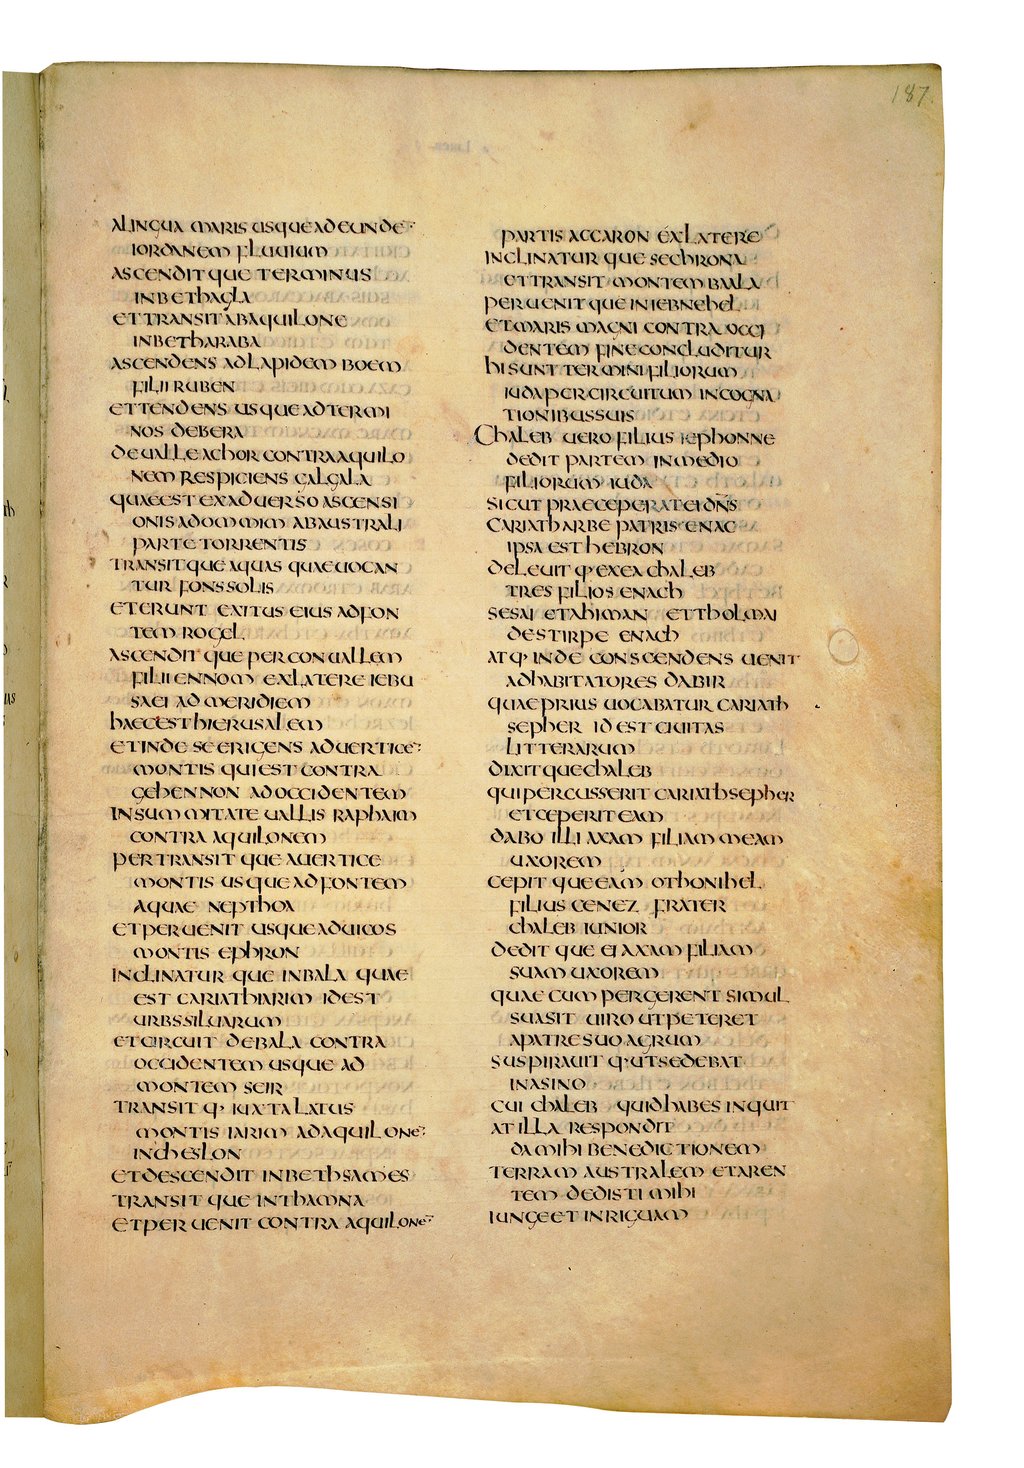 187.
A LINGUA MARIS USQUE AD EUNDE·
IORDANEM FLUUIUM
ASCENDITQUE TERMINUS
IN BETHAGLA
ET TRANSIT AB AQUILONE
IN BETHARABA
ASCENDENS AD LAPIDEM BOEM
FILII RUBEN
ET TENDENS USQUE AD TERMI
NOS DEBERA
DE UALLE ACHOR CONTRA AQUILO
NEM RESPICIENS GALGALA
QUAE EST EX ADUERSO ASCENSI
ONIS ADOMMIM AB AUSTRALI
PARTE TORRENTIS
TRANSITQUE AQUAS QUAE UOCAN
TUR FONS SOLIS
ET ERUNT EXITUS EIUS AD FON
TEM ROGEL
ASCENDITQUE PER CONUALLEM
FILII ENNOM EX LATERE IEBU
SAEI AD MERIDIEM
HAEC EST HIERUSALEM
ET INDE SE ERIGENS AD UERTICE·
MONTIS QUI EST CONTRA
GEHENNON AD OCCIDENTEM
IN SUMMITATE UALLIS RAPHAIM
CONTRA AQUILONEM
PERTRANSITQUE A UERTICE
MONTIS USQUE AD FONTEM
AQUAE NEPTHOA
ET PERUENIT USQUE AD UICOS
MONTIS EPHRON
INCLINATURQUE IN BALA QUAE
EST CARIATHIARIM ID EST
URBS SILUARUM
ET CIRCUIT DE BALA CONTRA
OCCIDENTEM USQUE AD
MONTEM SEIR
TRANSIT Q· IUXTA LATUS
MONTIS IARIM AD AQUILONE·
IN CHESLON
ET DESCENDIT IN BETHSAMES
TRANSITQUE IN THAMNA
ET PERUENIT CONTRA AQUILONE·
PARTIS ACCARON EX LATERE
INCLINATURQUE SECHRONA
ET TRANSIT MONTEM BAALA
PERUENITQUE IN IEBNEHEL
ET MARIS MAGNI CONTRA OCCI
DENTEM FINE CONCLUDITUR
HI SUNT TERMINI FILIORUM
IUDA PER CIRCUITUM IN COGNA
TIONIBUS SUIS
CHALEB UERO FILIUS IEPHONNE
DEDIT PARTEM IN MEDIO
FILIORUM IUDA
SICUT PRAECEPERAT EI DN̄S
CARIATHARBE PATRIS ENAC
IPSA EST HEBRON
DELEUIT Q· EX EA CHALEB
TRES FILIOS ENACH
SESAI ET AHIMAN ET THOLMAI
DE STIRPE ENACH
ATQ· INDE CONSCENDENS UENIT
AD HABITATORES DABIR
QUAE PRIUS UOCABATUR CARIATH
SEPHER ID EST CIUITAS
LITTERARUM
DIXITQUE CHALEB
QUI PERCUSSERIT CARIATHSEPHER
ET CEPERIT EAM
DABO ILLI AXAM FILIAM MEAM
UXOREM
CEPITQUE EAM OTHONIHEL
FILIUS CENEZ FRATER
CHALEB IUNIOR
DEDITQUE EI AXAM FILIAM
SUAM UXOREM
QUAE CUM PERGERENT SIMUL
SUASIT UIRO UT PETERET
A PATRE SUO AGRUM
SUSPIRAUIT Q· UT SEDEBAT
IN ASINO
CUI CHALEB QUID HABES INQUIT
AT ILLA RESPONDIT
DA MIHI BENEDICTIONEM
TERRAM AUSTRALEM ET AREN
TEM DEDISTI MIHI
IUNGE ET INRIGUAM